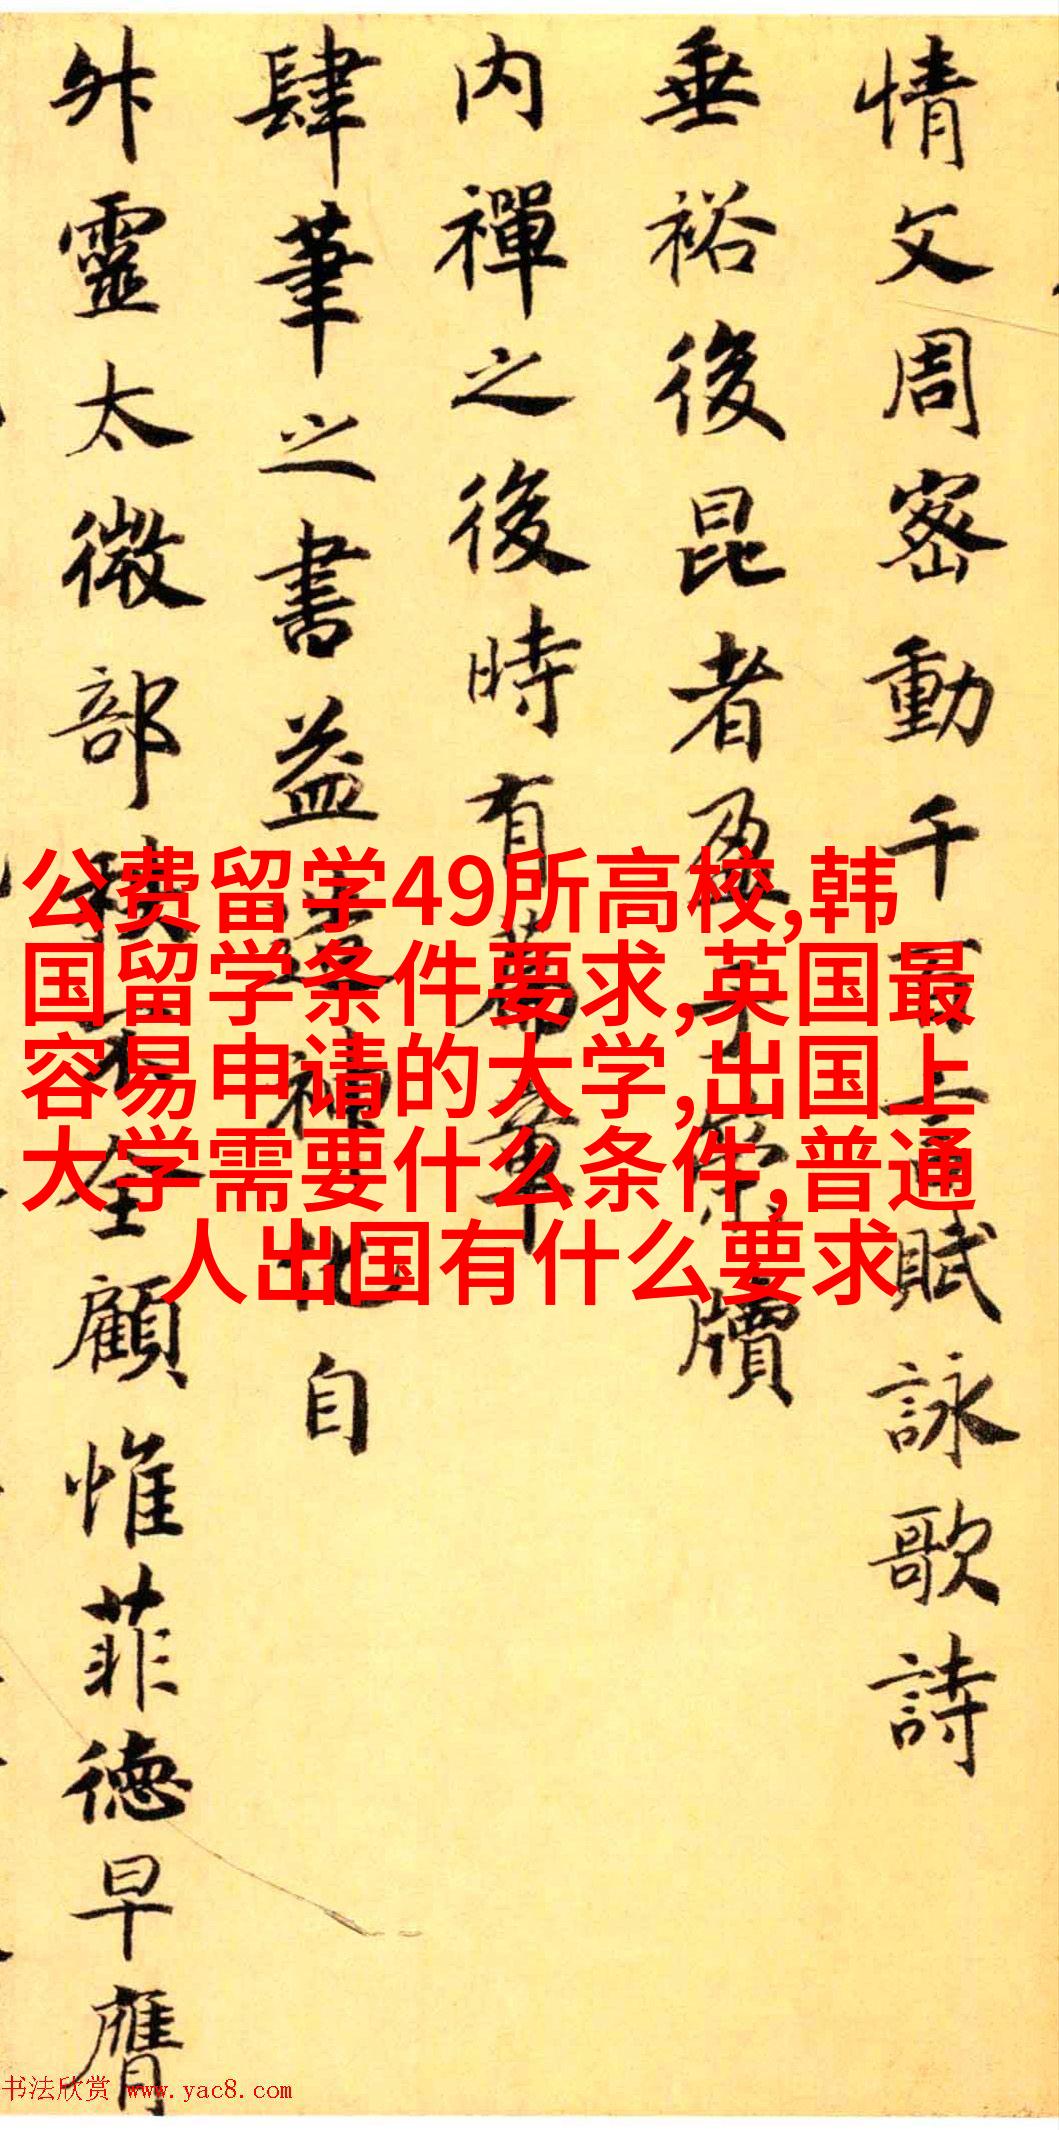 情文周密動千百言賦詠歌詩
垂裕後昆者盈于緗牘
内禪之後時有萬章
肆筆之書益造神化自
外靈太微部積余顧惟菲德早膺
公费留学49所高校,韩
国留学条件要求,英国最
容易申请的大学,出国上
大学需要什么条件,普通
人出国有什么要求
书法欣赏 www.yac8.com